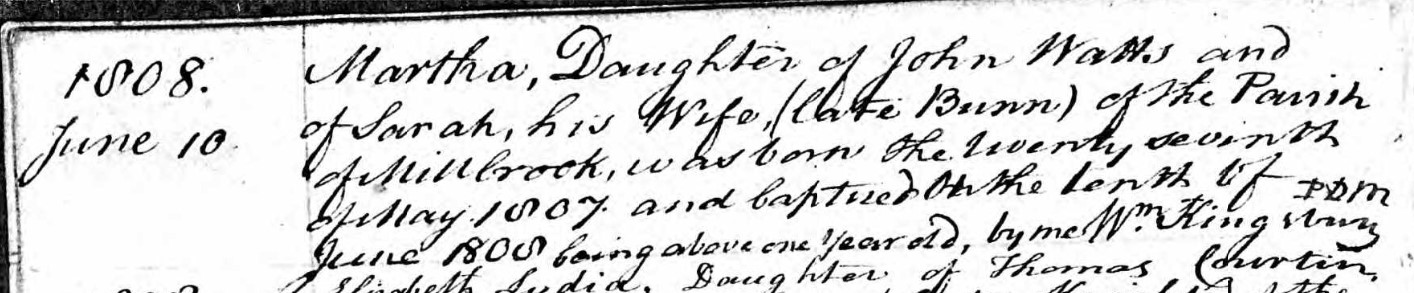 1808.
June 10
Martha, Daughter of John Watts and
of Sarah, his Wife, (late Bunn) of the Parish
of Millbrook, was born the twenty seventh
of May 1807. and baptized the tenth of
June 1808 being above one year old, by me Wm. Kingsbury
Elizabeth Lydia, Daughter of Thomas